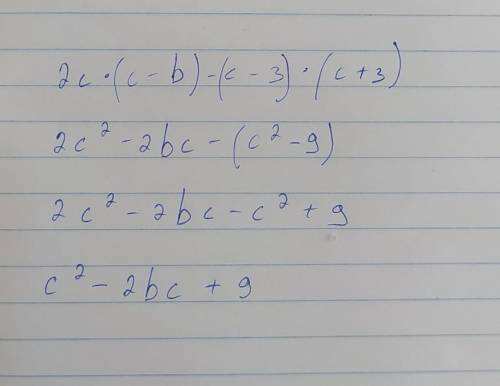 2c·(c-b)-(c-3)·(c+3)
2c²-2bc-(c²-9)
2c²-2bc-c²+9
c²-2bc+9